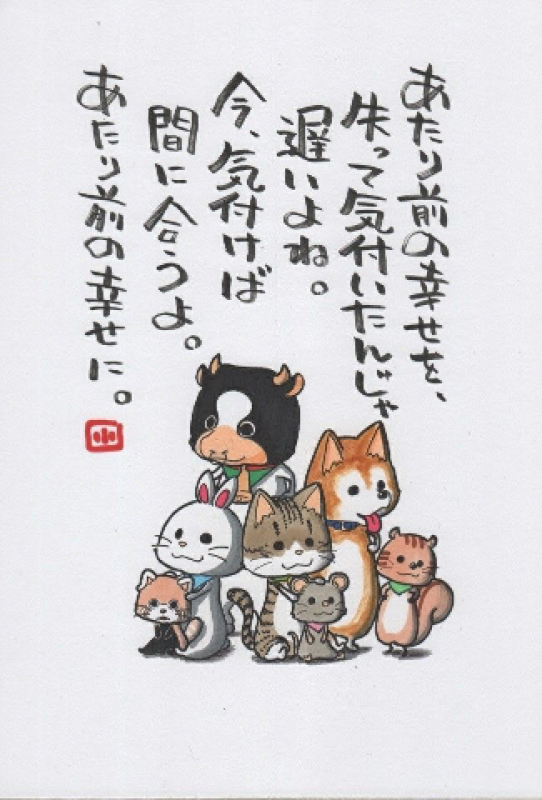 あたり前の幸せを、
失って気付いたんじゃ
遅いよね。
今、気付けば
間に合うよ。
あたり前の幸せに。